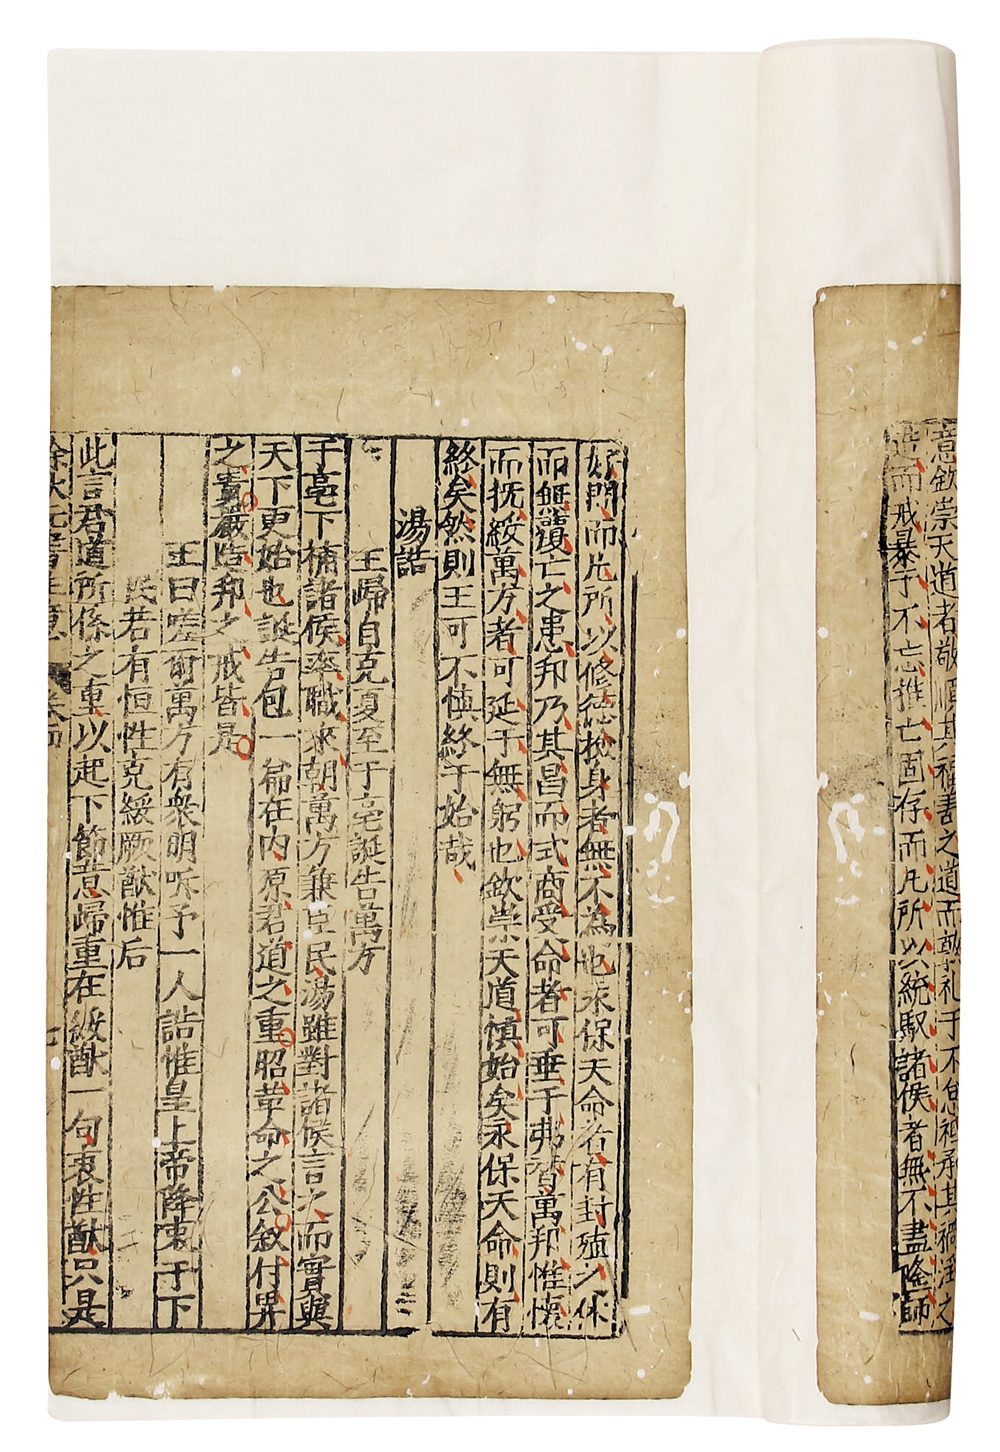 意欽崇天道者敬順其福善之道而尊礼于不怠祗承其禍淫之
而戒暴予不忘推亡固存而凡所以統馭諸侯者無不盡隆師
好問而凡所以修德檢身者無不為也永保天命者有封殖之休
而無覆亡之患邦乃其昌而式商受命者可垂于弗替萬邦惟懷
而抚綏萬方者可延于無躬也欽崇天道慎始矣永保天命則有
終矣然則王可不慎終于始哉
湯誥
王歸自克夏至于亳誕告萬方
于亳下補諸侯率職來朝萬方兼臣民湯雖對諸侯言之而實與
天下更始也誕告包一篇在内原君道之重昭革命之公敘付畀
之責嚴造邦之戒皆是
王曰嗟爾萬方有衆明听予一人誥惟皇上帝降衷于下
民若有恒性克綏厥猷惟后
此言君道所係之重以起下節意歸重在綏猷一句衷性猷只是